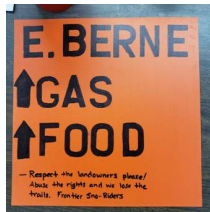 E. BERNE
↑GAS
↑FOOD
- Respect the landowners please!
Abuse the rights and we lose the
trails. Frontier Sno-Riders